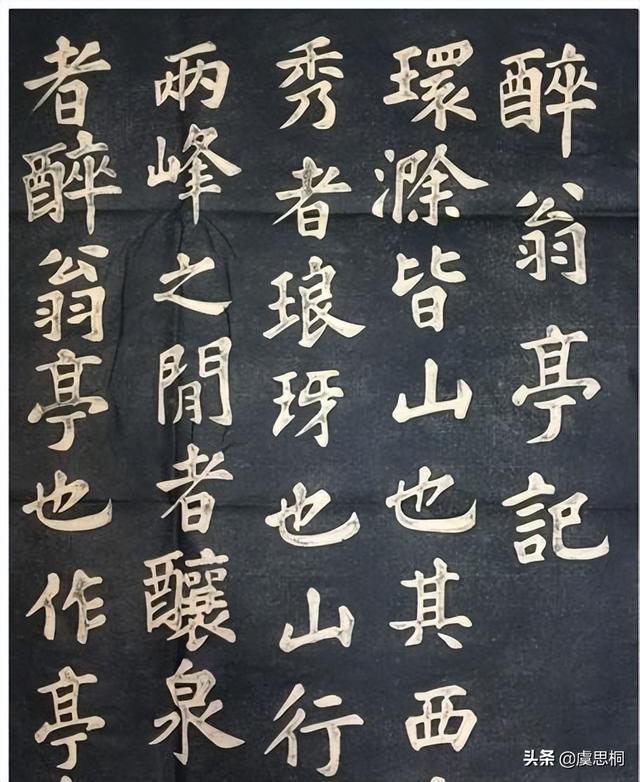 醉翁亭記
環滁皆山也其西
秀者瑯玡也山行
兩峰之閒者釀泉
者醉翁亭也作亭
头条 @虞思桐